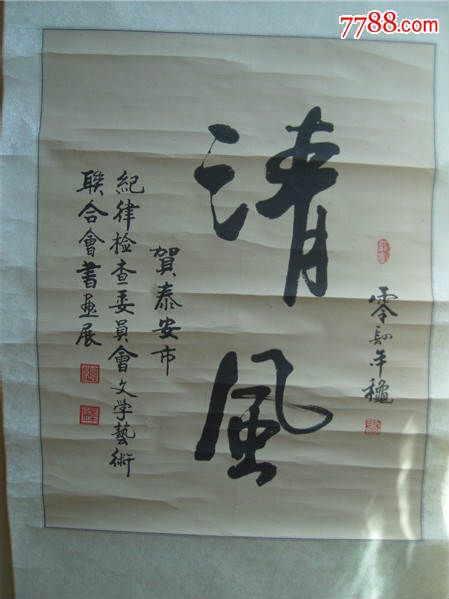 7788.com
零年穐
清風
賀泰安市
紀律检查委員會文学藝術
聯合會書画展